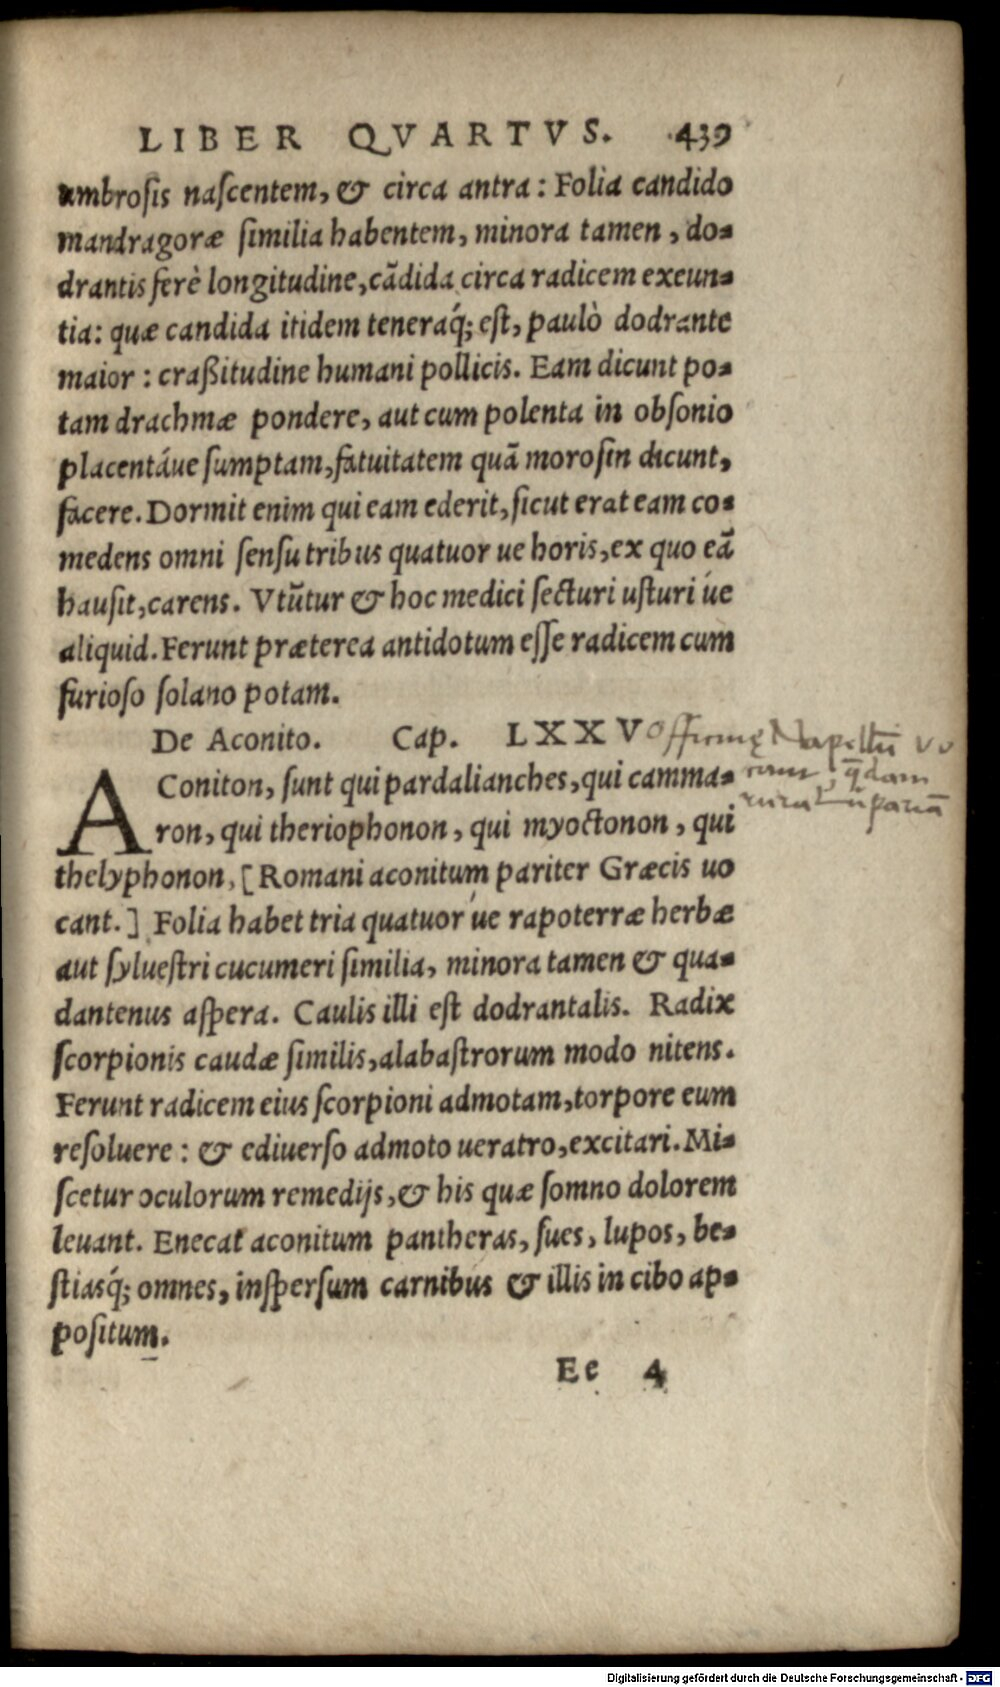 LIBER QVARTVS. 439
umbrosis nascentem, & circa antra: Folia candido
mandragoræ similia habentem, minora tamen, do-
drantis ferè longitudine, cãdida circa radicem exeun-
tia: quæ candida itidem teneraq́; est, paulò dodrante
maior: craßitudine humani pollicis. Eam dicunt po-
tam drachmæ pondere, aut cum polenta in obsonio
placentáue sumptam, fatuitatem quã morosin dicunt,
facere. Dormit enim qui eam ederit, sicut erat eam co-
medens omni sensu tribus quatuor ue horis, ex quo eã
hausit, carens. Vtũtur & hoc medici secturi usturi úe
aliquid. Ferunt præterea antidotum esse radicem cum
furioso solano potam.
De Aconito. Cap. LXXV
Officinę Napellũ vo
AConiton, sunt qui pardalianches, qui camma-
cant, q̃dam
ron, qui theriophonon, qui myoctonon, qui
thelyphonon, [Romani aconitum pariter Græcis uo
cant.] Folia habet tria quatuor úe rapoterræ herbæ
aut syluestri cucumeri similia, minora tamen & qua-
dantenus aspera. Caulis illi est dodrantalis. Radix
scorpionis caudæ similis, alabastrorum modo nitens.
Ferunt radicem eius scorpioni admotam, torpore eum
resoluere: & ediuerso admoto ueratro, excitari. Mi-
scetur oculorum remedijs, & his quæ somno dolorem
leuant. Enecat aconitum pantheras, sues, lupos, be-
stiasq́; omnes, inspersum carnibus & illis in cibo ap-
positum.
Ee 4
Digitalisierung gefördert durch die Deutsche Forschungsgemeinschaft - DFG